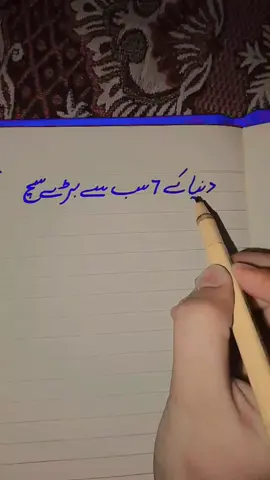 دنیا کے 7 سب سے بڑے سچ